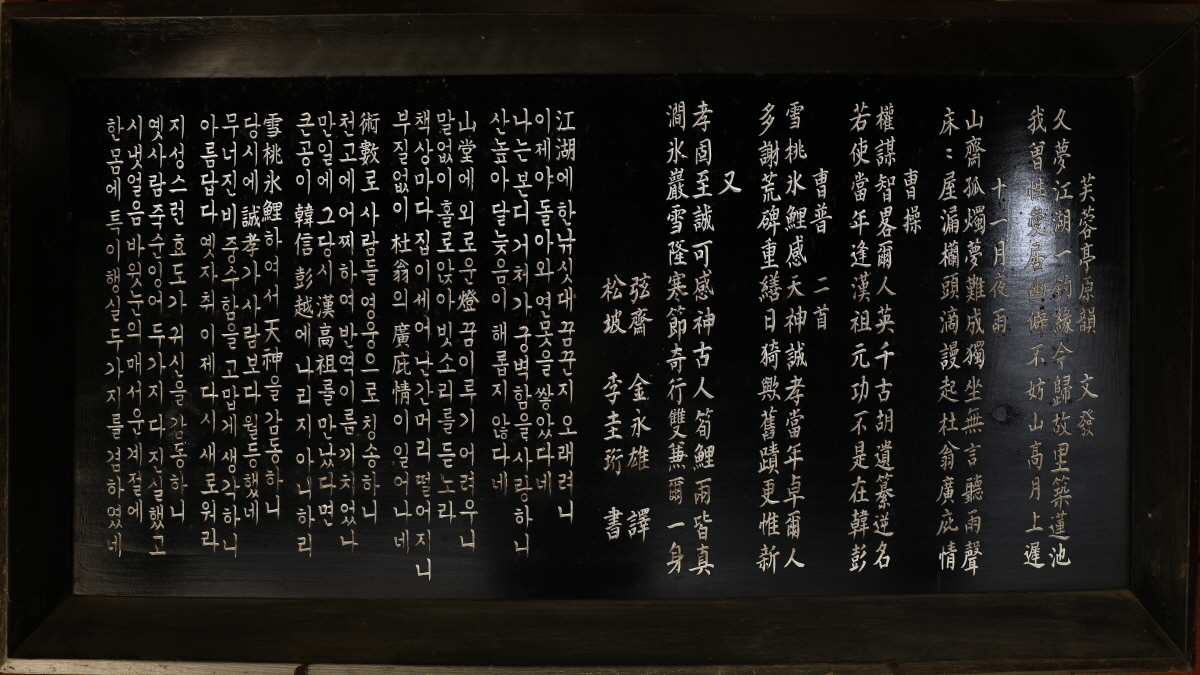 芙蓉亭原韻 文發
久夢江湖一釣緣今歸故里築蓮池
我曾性愛居幽僻不妨山高月上遲
十一月夜雨
山齋孤燭夢難成獨坐無言聽雨聲
床:屋漏欄頭滴謾起杜翁廣庇情
曹操
權謀智畧爾人英千古胡遺篡逆名
若使當年逢漢祖元功不是在韓彭
曹普 二首
雪桃氷鯉感天神誠孝當年卓爾人
多謝荒碑重繕日猗歟舊蹟更惟新
又
孝固至誠可感神古人筍鯉兩皆真
澗氷巖雪隆寒節奇行雙兼爾一身
弦齋 金永雄 譯
松坡 李圭珩 書
江湖에 한낚싯대 꿈꾼지 오래려니
이제야 돌아와 연못을 쌓았다네
나는 본디 거처가 궁벽함을 사랑하니
산높아 달늦음이 해롭지 않다네
山堂에 외로운 燈 꿈이루기 어려우니
말없이 홀로앉아 빗소리를 듣노라
책상마다 집이 세어 난간머리 떨어지니
부질없이 杜翁의 廣庇情이 일어나네
術數로 사람들 영웅으로 칭송하니
천고에 어찌하여 반역이름 끼치었나
만일에 그당시 漢高祖를 만났다면
큰공이 韓信 彭越에 나리지 아니하리
雪桃氷鯉하여서 天神을 감동하니
당시에 誠孝가 사람보다 월등했네
무너진비 중수함을 고맙게 생각하니
아름답다 옛자취 이제다시 새로워라
지성스런 효도가 귀신을 감동하니
옛사람 죽순잉어 두가지 다 진실했고
시냇얼음 바윗눈의 매서운 계절에
한몸에 특이행실 두가지를 겸하였네